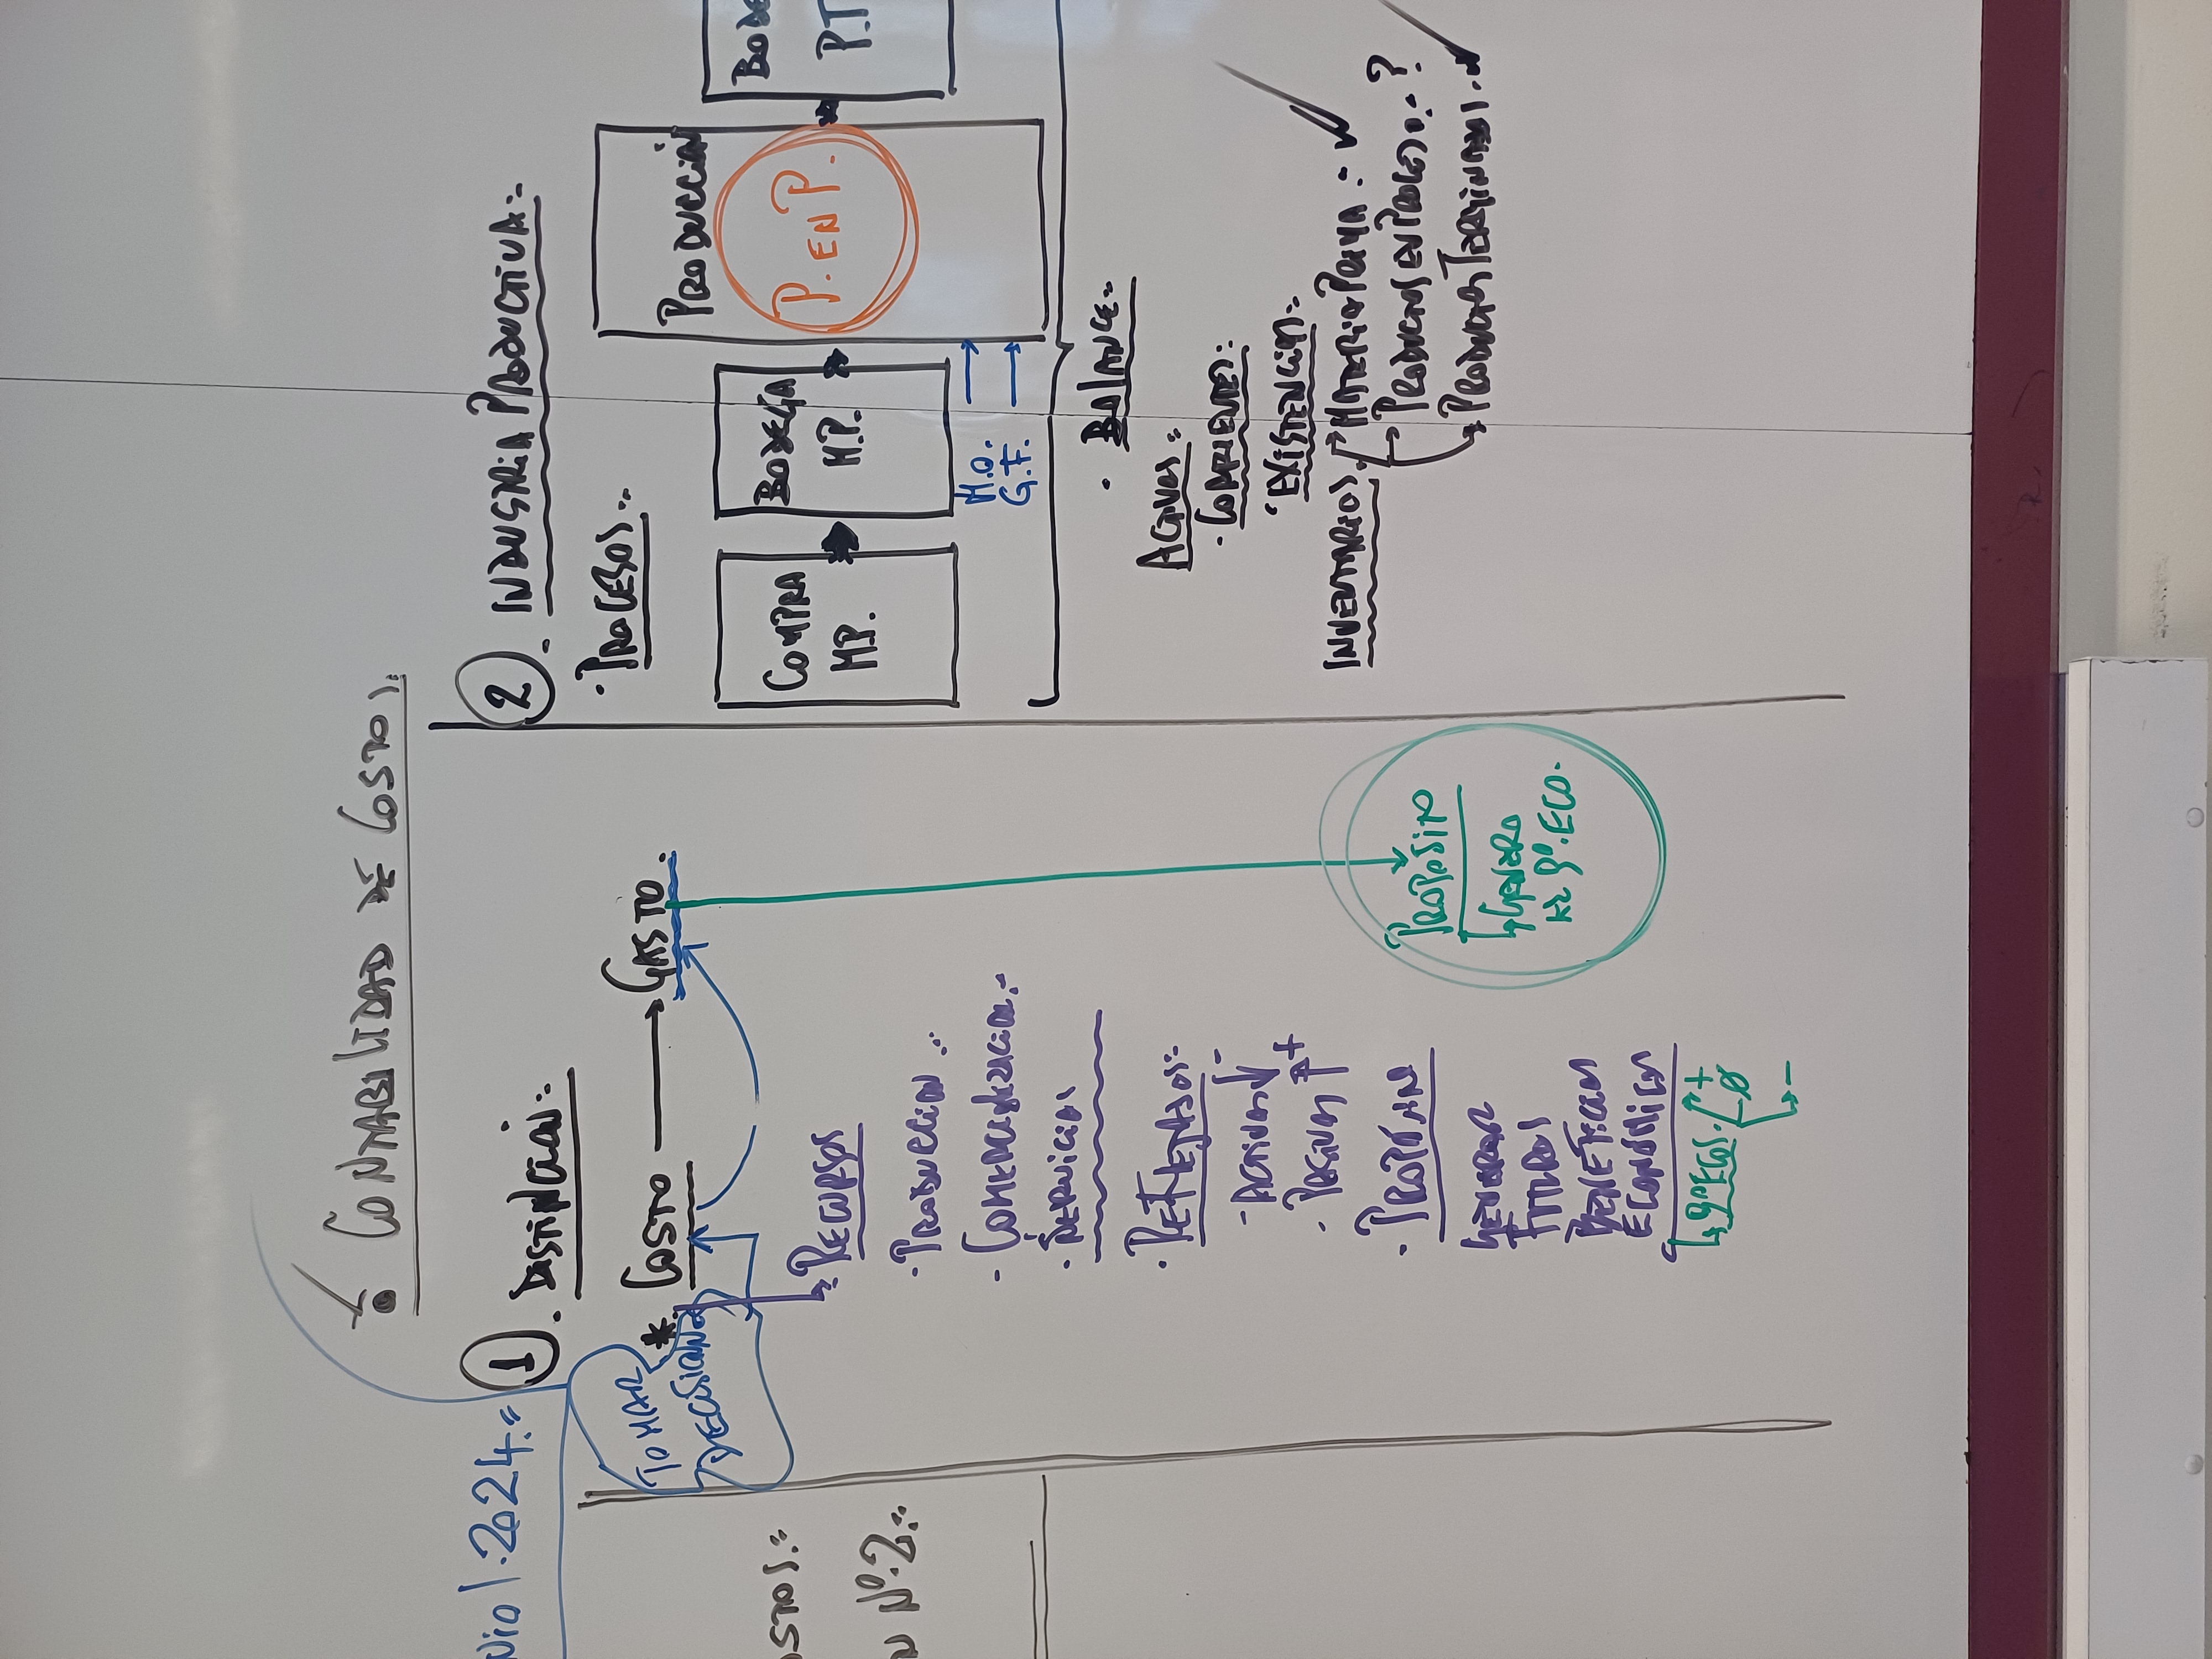 CONTABILIDAD DE COSTOS.
NIO 1.2024.=
OSTOS.=
N Nº.2.-
TOMAR
DECISIONES
1. DISTINCIÓN:-
* COSTO → GASTO.
RECURSOS
· PRODUCCIÓN.-
- COMERCIALIZACIÓN.-
· SERVICIOS
· REFLEJADOS:-
- ACTIVOS ↓ -
- PASIVOS ↑ +
· PROPÓSITO
GENERAR
FUTUROS
BENEFICIOS
ECONÓMICOS
ECOS. +
Ø
-
PROPOSITO
GENERO
ECO.
2. INDUSTRIA PRODUCTIVA:-
· PROCESOS.-
COMPRA
M.P.
BODEGA
M.P.
PRODUCCIÓN
P. EN P.
BODE
P.T
M.O. →
G.F. →
· BALANCE:-
ACTIVOS:
· CORRIENTES:
· EXISTENCIAS:
INVENTARIOS. → MATERIA PRIMA :- ✓
→ PRODUCTOS EN PROCESO.- ?
→ PRODUCTOS TERMINADOS. ✓